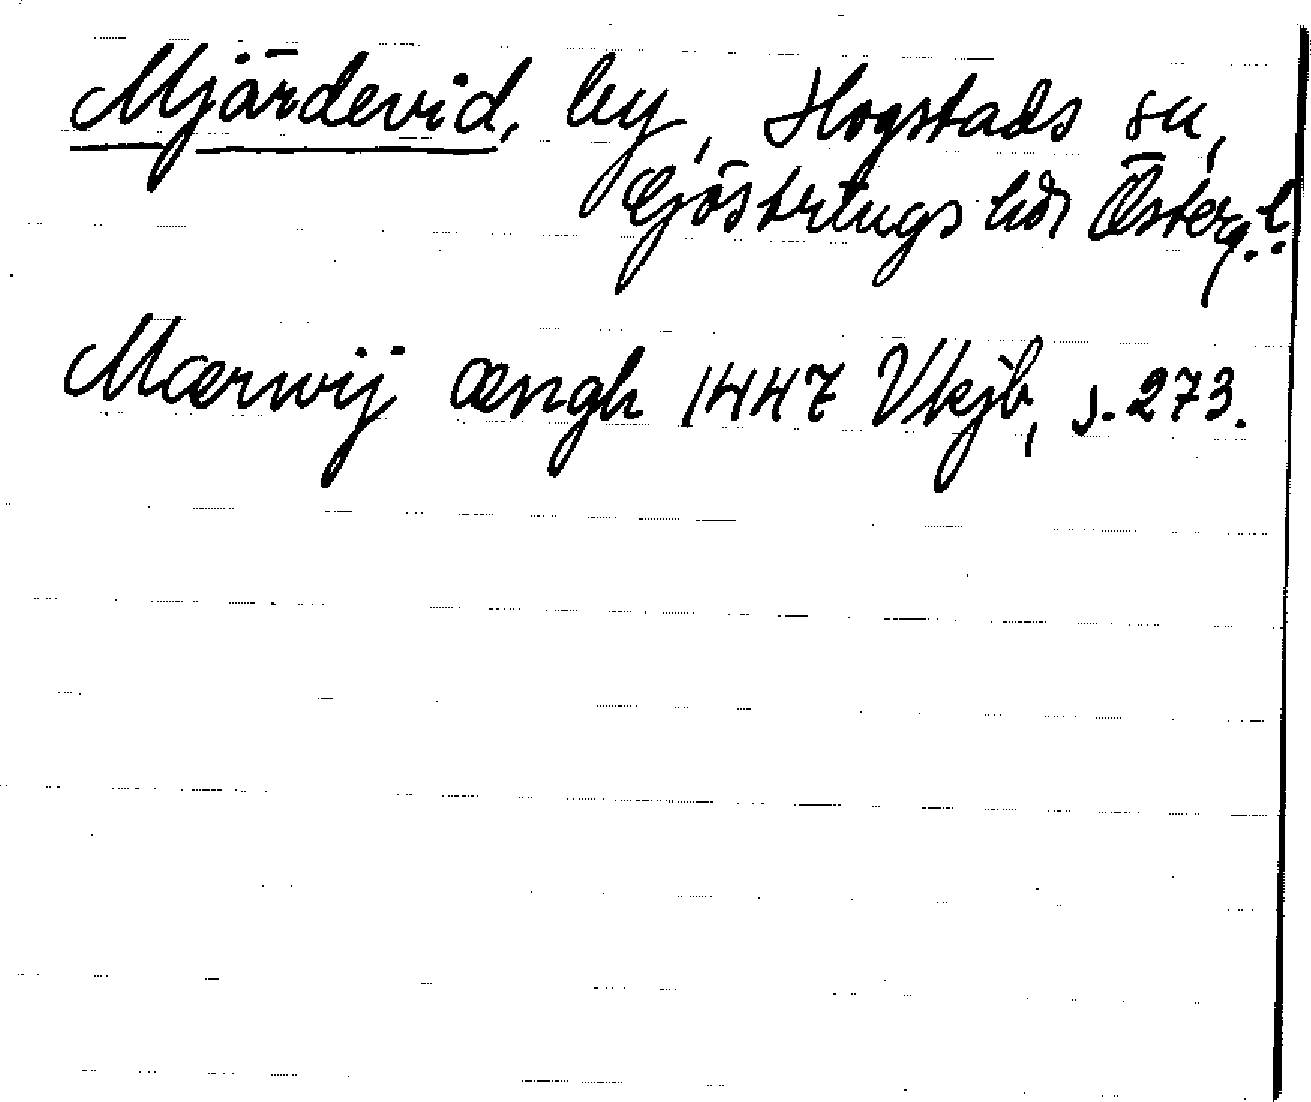 Mjärdevid, by, Hogstads sn,
Göstrings hdr Österg.l.
Mærwij ængh 1447 Vkjb, s. 273.